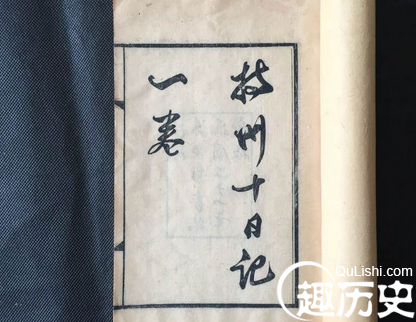 揚州十日記
一卷
QuLishi.com
趣历史